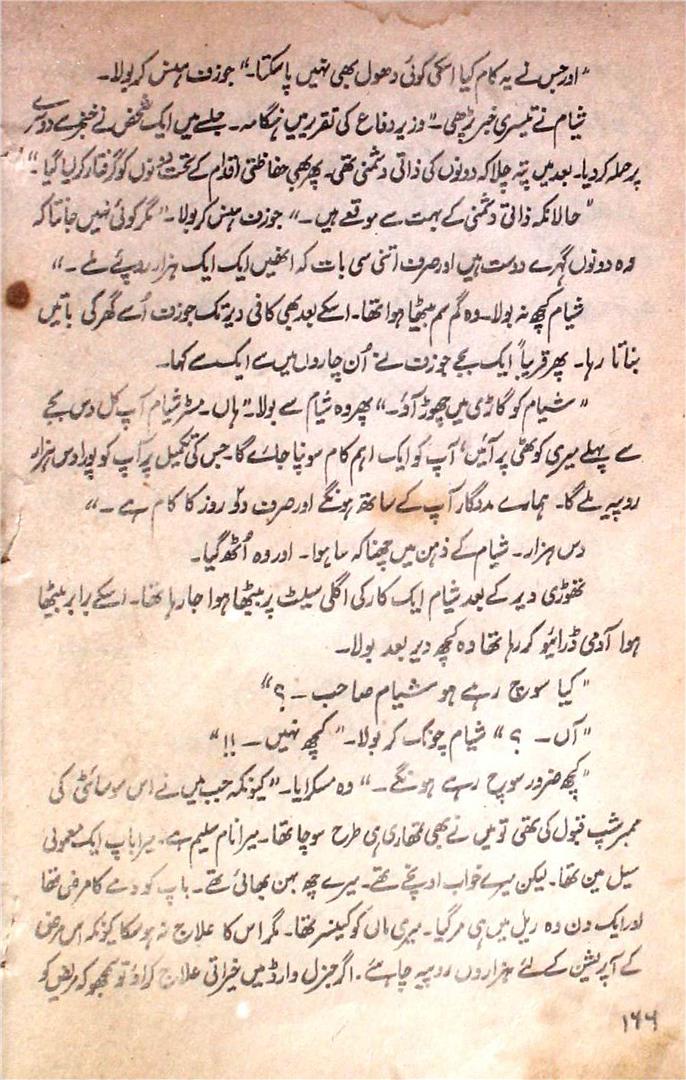 "اور جس نے یہ کام کیا اسکی کوئی دھول بھی نہیں پا سکتا۔" جوزف ہنس کر بولا۔
شیام نے تیسری خبر پڑھی۔ "وزیر دفاع کی تقریر میں ہنگامہ۔ جلسے میں ایک شخص نے خنجر سے دوسرے
پر حملہ کر دیا۔ بعد میں پتہ چلا کہ دونوں کی ذاتی دشمنی تھی۔ پھر بھی حفاظتی اقدام کے تحت دونوں کو گرفتار کر لیا گیا۔"
"حالانکہ ذاتی دشمنی کے بہت سے موقعے ہیں۔" جوزف ہنس کر بولا۔ "مگر کوئی نہیں جانتا کہ
وہ دونوں گہرے دوست ہیں اور صرف اتنی سی بات کہ انھیں ایک ایک ہزار روپئے ملے۔"
شیام کچھ نہ بولا۔ وہ گم سم بیٹھا ہوا تھا۔ اسکے بعد بھی کافی دیر تک جوزف اُسے گھر کی باتیں
بتاتا رہا۔ پھر قریباً ایک بجے جوزف نے اُن چاروں میں سے ایک سے کہا۔
"شیام کو گاڑی میں چھوڑ آؤ۔" پھر وہ شیام سے بولا۔ "ہاں۔ مسٹر شیام آپ کل دس بجے
سے پہلے میری کوٹھی پر آئیں، آپ کو ایک اہم کام سونپا جائے گا۔ جس کی تکمیل پر آپ کو پورا دس ہزار
روپیہ ملے گا۔ ہمارے مددگار آپ کے ساتھ ہونگے اور صرف دو روز کا کام ہے۔"
دس ہزار۔ شیام کے ذہن میں چھناکہ سا ہوا۔ اور وہ اُٹھ گیا۔
تھوڑی دیر کے بعد شیام ایک کار کی اگلی سیٹ پر بیٹھا ہوا جا رہا تھا۔ اسکے برابر بیٹھا
ہوا آدمی ڈرائیو کر رہا تھا وہ کچھ دیر بعد بولا۔
"کیا سوچ رہے ہو شیام صاحب۔؟"
"آں۔ ؟" شیام چونک کر بولا۔ "کچھ نہیں۔!!"
"کچھ ضرور سوچ رہے ہونگے۔" وہ مسکرایا۔ "کیونکہ جب میں نے اس سوسائٹی کی
ممبر شپ قبول کی تھی تو میں نے بھی تمھاری ہی طرح سوچا تھا۔ میرا نام سلیم ہے۔ میرا باپ ایک معمولی
سیل مین تھا۔ لیکن میرے خواب اونچے تھے۔ میرے چھ بہن بھائی تھے۔ باپ کو دمے کا مرض تھا
اور ایک دن وہ ریل میں ہی مر گیا۔ میری ماں کو کینسر تھا۔ مگر اس کا علاج نہ ہو سکا کیونکہ اس مرض
کے آپریشن کے لئے ہزاروں روپیہ چاہئے۔ اگر جنرل وارڈ میں خیراتی علاج کراؤ تو سمجھو کہ مریض کو
۱۶۶